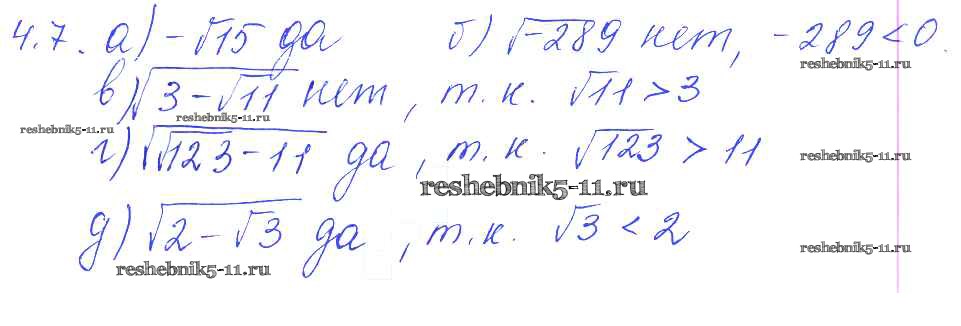 4.7. а) -√15 да б) √-289 нет, -289<0.
reshebnik5-11.ru
в) √3-√11 нет, т.к. √11>3
reshebnik5-11.ru
reshebnik5-11.ru
г) √√123-11 да, т.к. √123>11
reshebnik5-11.ru
reshebnik5-11.ru
д) √2-√3 да, т.к. √3<2
reshebnik5-11.ru
reshebnik5-11.ru